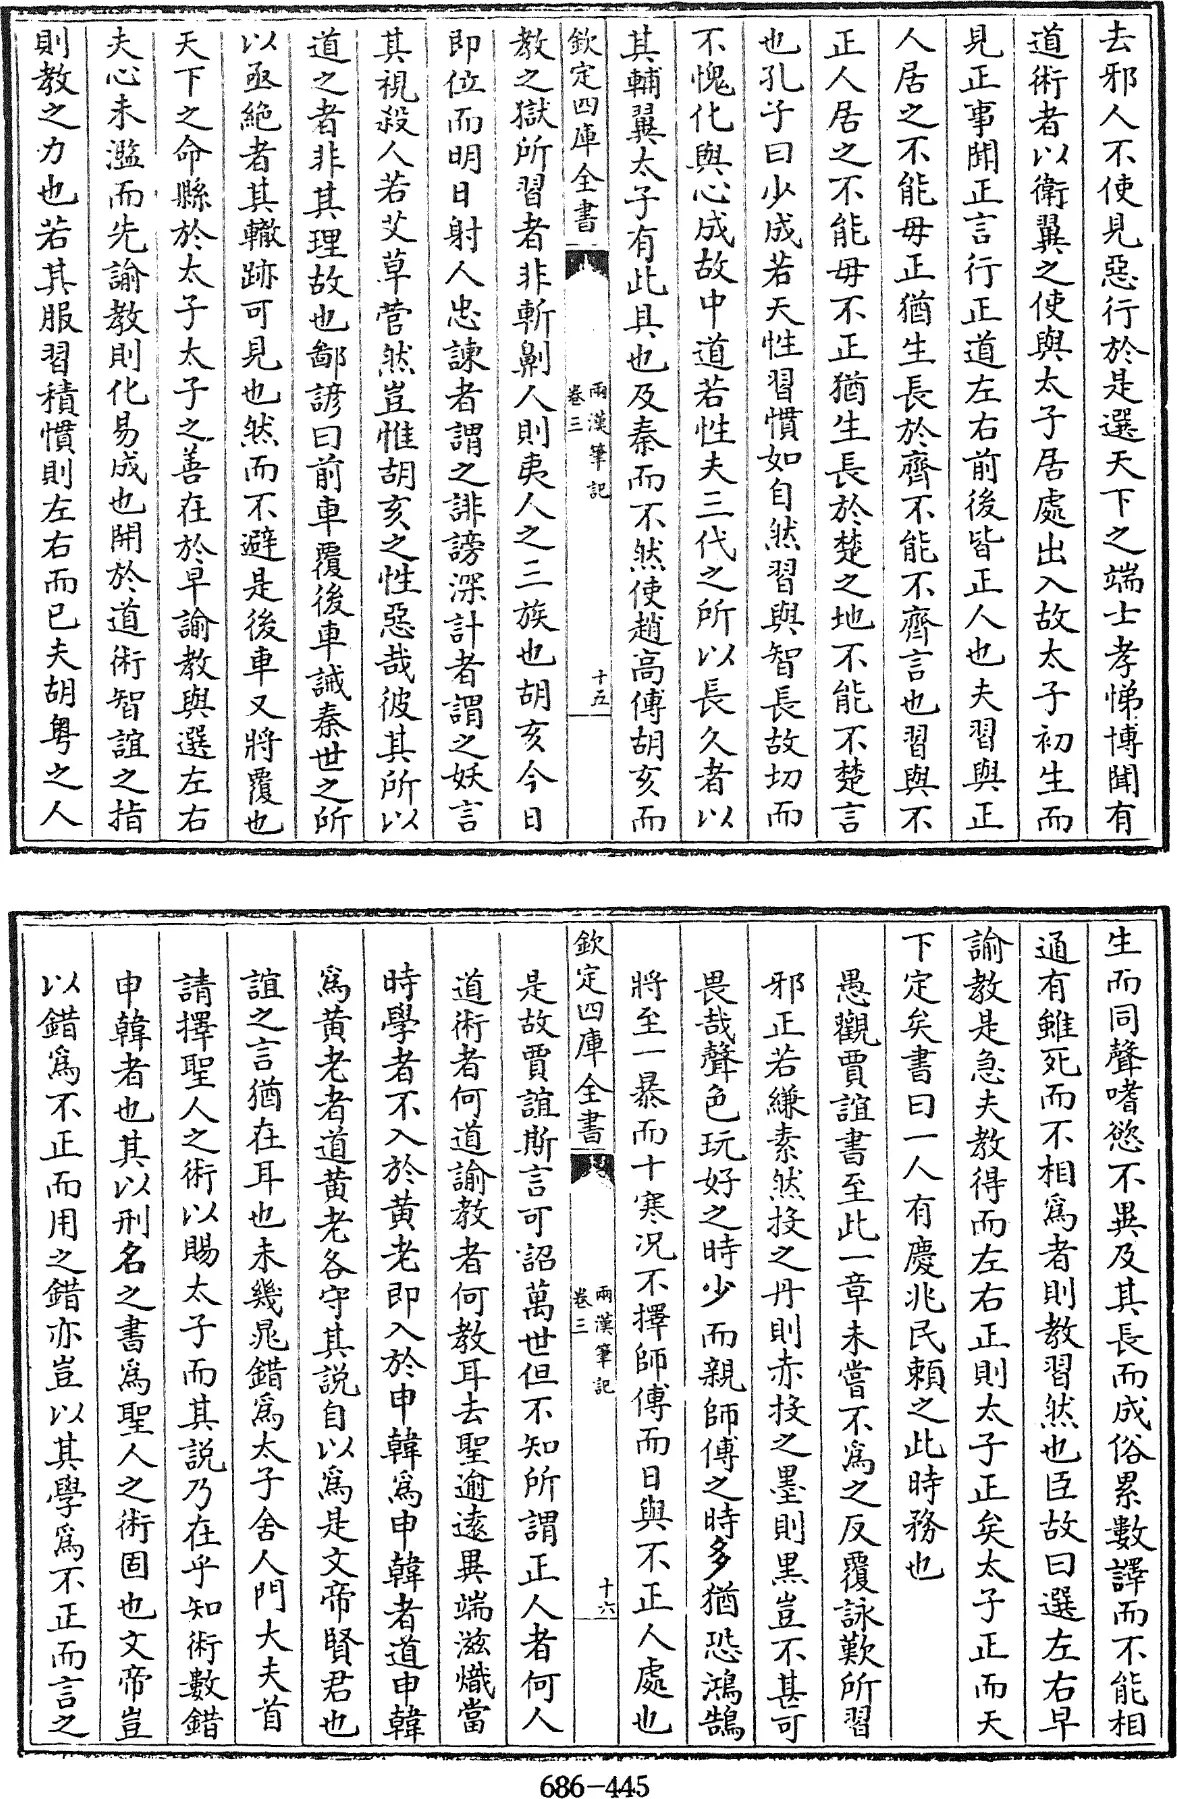 去邪人不使見惡行於是選天下之端士孝悌博聞有
道術者以衛翼之使與太子居處出入故太子初生而
見正事聞正言行正道左右前後皆正人也夫習與正
人居之不能毋正猶生長於齊不能不齊言也習與不
正人居之不能毋不正猶生長於楚之地不能不楚言
也孔子曰少成若天性習慣如自然習與智長故切而
不愧化與心成故中道若性夫三代之所以長久者以
其輔翼太子有此具也及秦而不然使趙高傅胡亥而
欽定四庫全書
兩漢筆記
卷三
十五
教之獄所習者非斬劓人則夷人之三族也胡亥今日
即位而明日射人忠諫者謂之誹謗深計者謂之妖言
其視殺人若艾草菅然豈惟胡亥之性惡哉彼其所以
道之者非其理故也鄙諺曰前車覆後車誡秦世之所
以亟絶者其轍跡可見也然而不避是後車又將覆也
天下之命縣於太子太子之善在於早諭教與選左右
夫心未濫而先諭教則化易成也開於道術智誼之指
則教之力也若其服習積慣則左右而已夫胡粤之人
生而同聲嗜慾不異及其長而成俗累數譯而不能相
通有雖死而不相爲者則教習然也臣故曰選左右早
諭教是急夫教得而左右正則太子正矣太子正而天
下定矣書曰一人有慶兆民賴之此時務也
愚觀賈誼書至此一章未嘗不爲之反覆詠歎所習
邪正若縑素然投之丹則赤投之墨則黒豈不甚可
畏哉聲色玩好之時少而親師傅之時多猶恐鴻鵠
將至一暴而十寒况不擇師傅而日與不正人處也
欽定四庫全書
兩漢筆記
卷三
十六
是故賈誼斯言可詔萬世但不知所謂正人者何人
道術者何道諭教者何教耳去聖逾逺異端滋熾當
時學者不入於黄老即入於申韓爲申韓者道申韓
爲黄老者道黄老各守其説自以爲是文帝賢君也
誼之言猶在耳也未幾鼂錯爲太子舍人門大夫首
請擇聖人之術以賜太子而其説乃在乎知術數錯
申韓者也其以刑名之書爲聖人之術固也文帝豈
以錯爲不正而用之錯亦豈以其學爲不正而言之
686-445